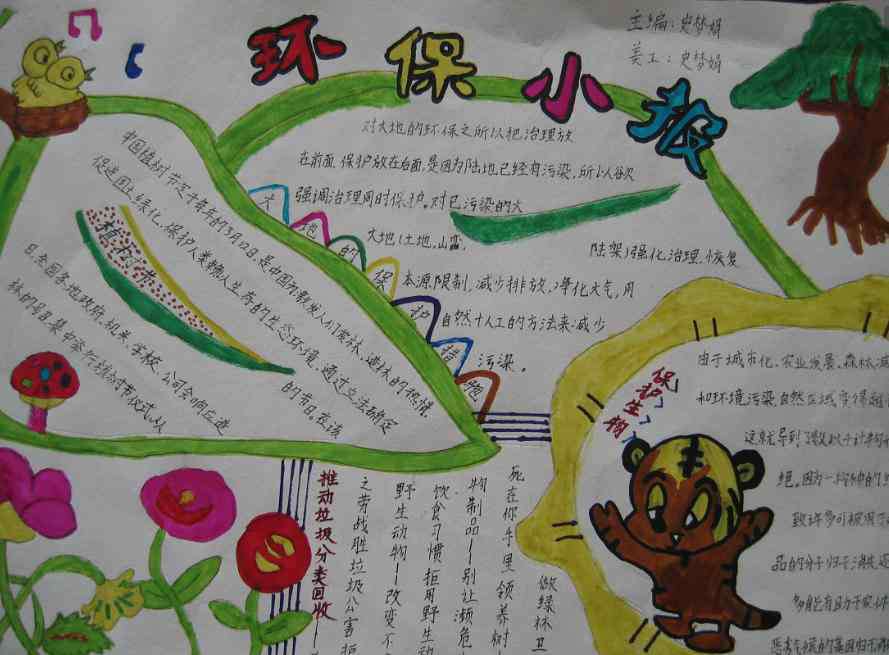 环保小报
主编：史梦娟
美工：史梦娟
对大地的环保之所以把治理放
在前面、保护放在后面，是因为陆地已经有污染，所以欲
强调治理同时保护。对已污染的大
大地（土地、山峦、
陆架）强化治理、恢复
本源，限制、减少排放，净化大气，用
自然＋人工的方法来减少
污染。
的保护措施
植树节
中国植树节定于每年的3月12日，是中国为激发人们爱林、造林的热情，
促进国土绿化，保护人类赖以生存的生态环境，通过立法确定
的节日。在该
日，全国各地政府、机关、学校、公司会响应造
林的号召集中举行植树节仪式，从
保护生物
由于城市化、农业发展、森林减
和环境污染，自然区域变得越
这就导到了数以千计物
绝。因为一物种的
致许多可被用
品的分子归于消失，还
多能有助于农作
恶劣气候的基因归于
做绿林卫
死在你手里领养树
物制品—别让濒危
饮食习惯拒用野生动
野生动物—改变不
之劳战胜垃圾公害拒
推动垃圾分类回收—